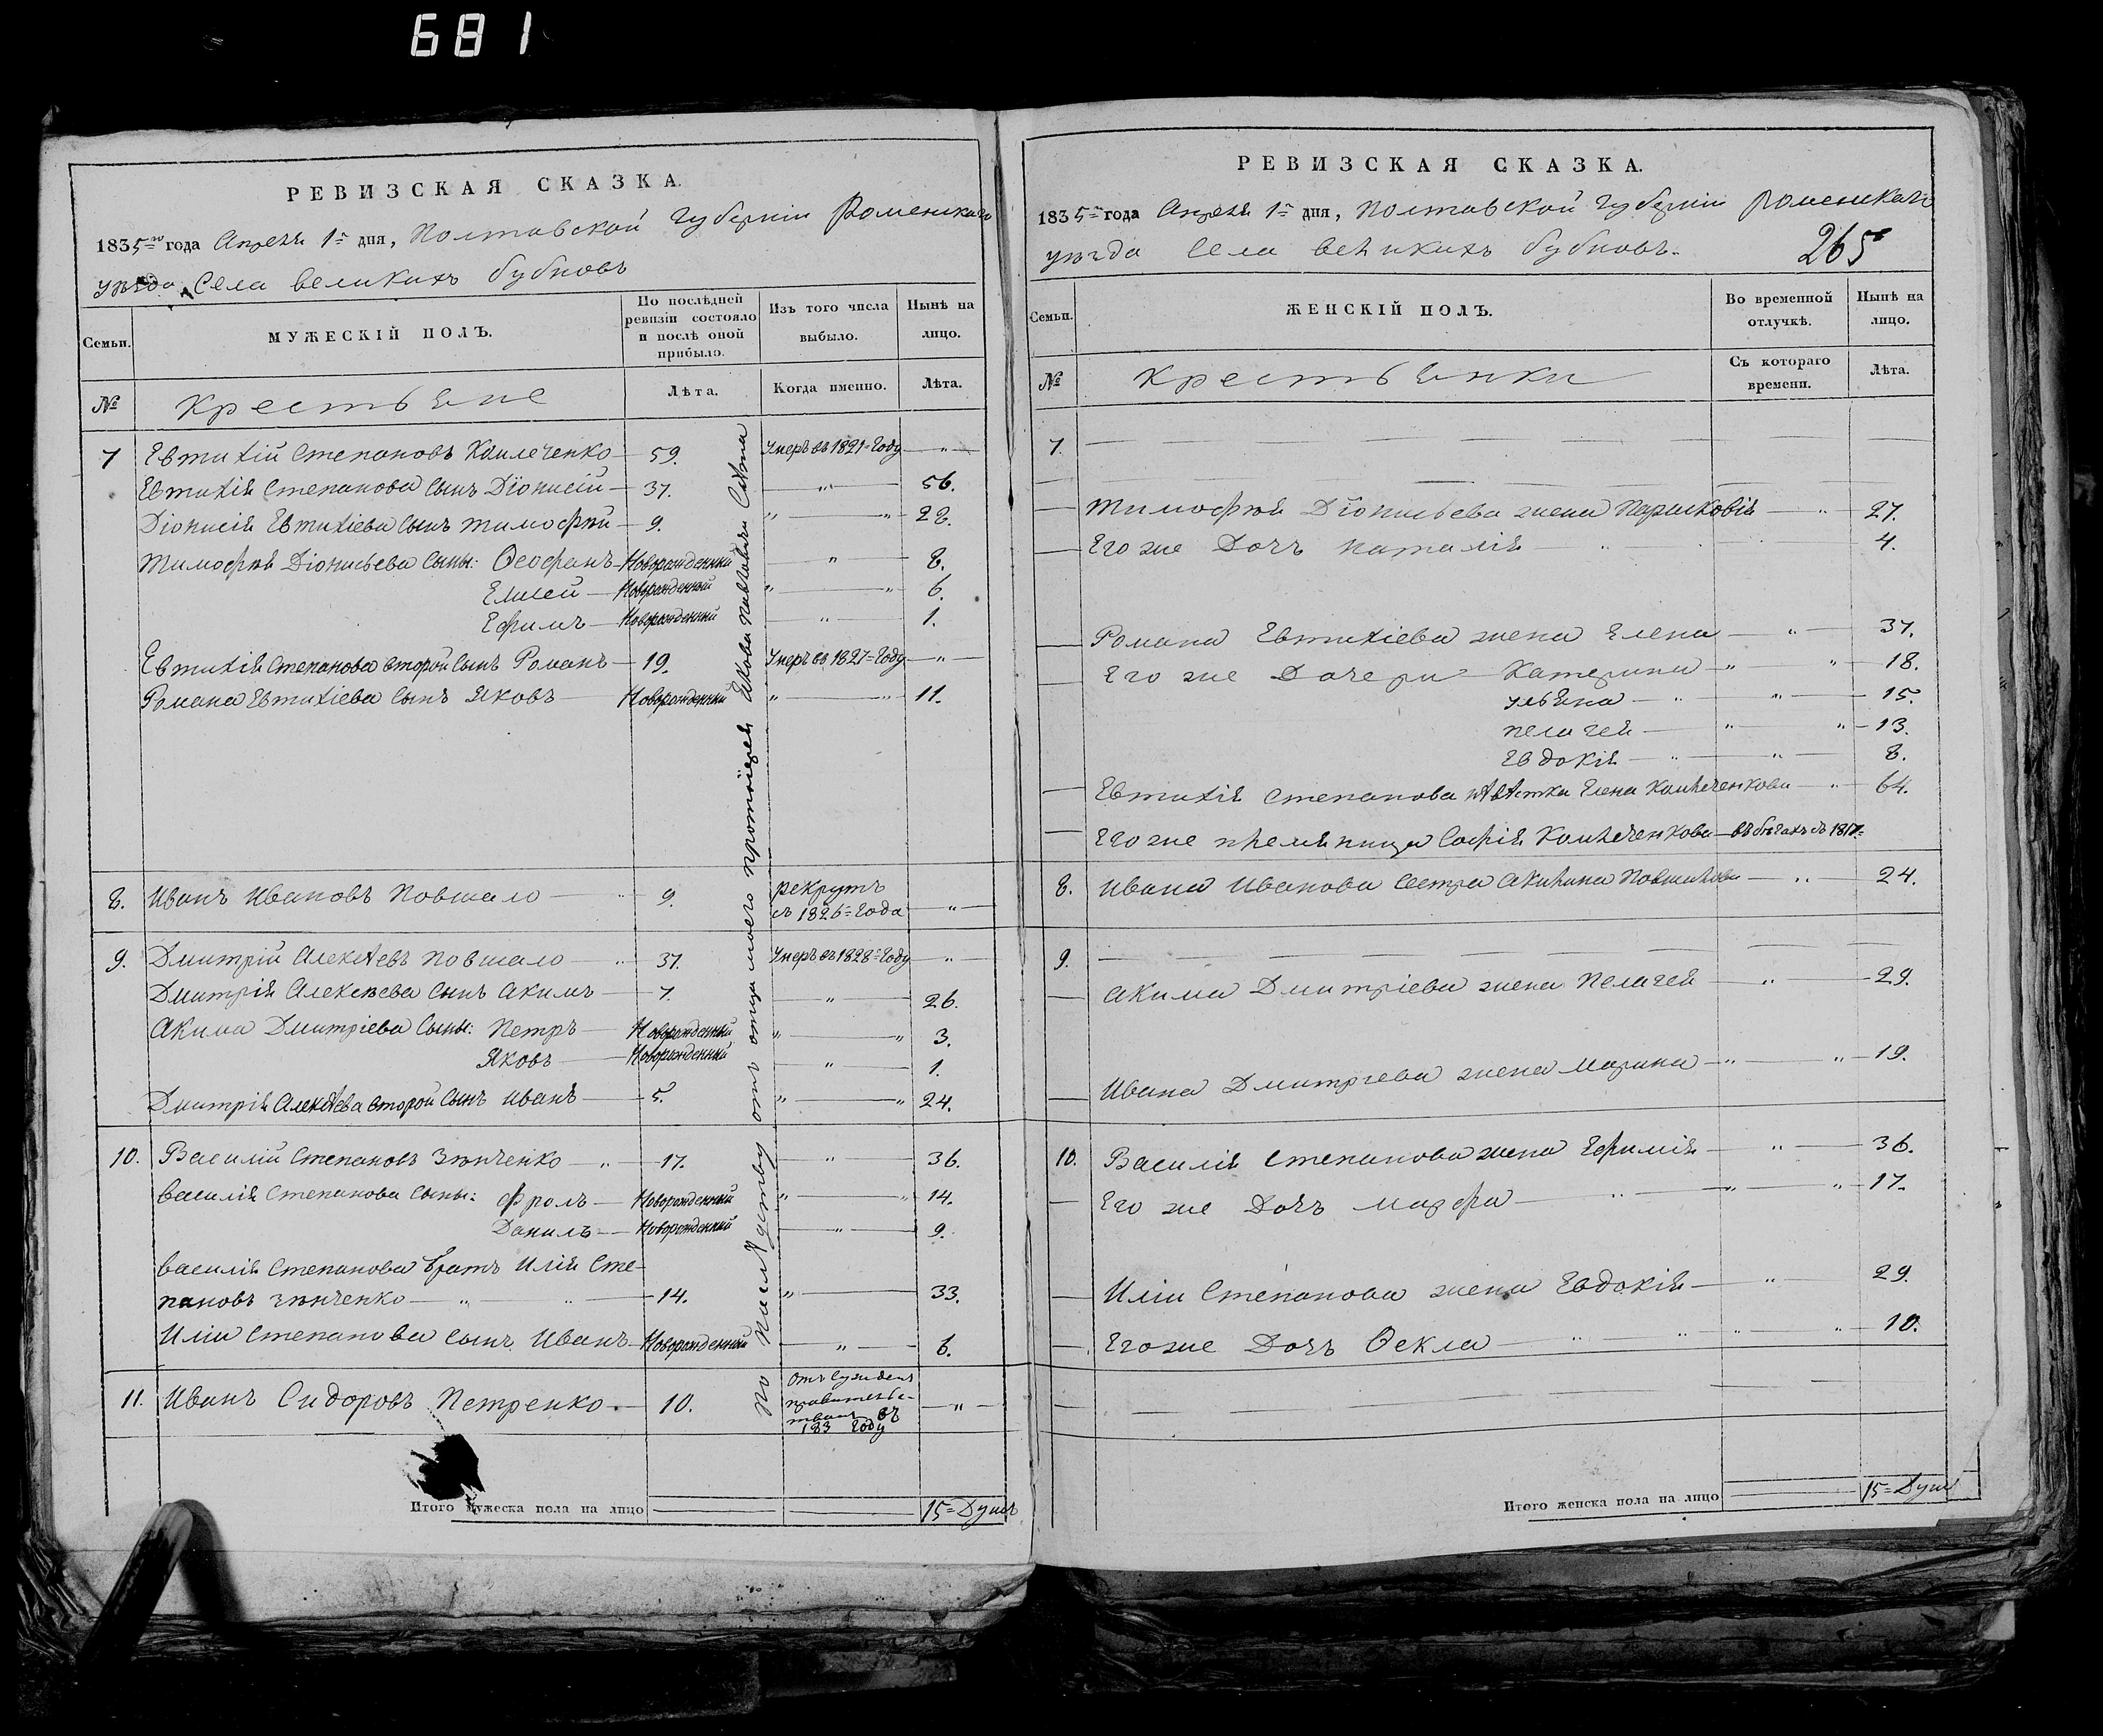 681
РЕВИЗСКАЯ СКАЗКА.
1835го года Апреля 1го дня, Полтавской Губерніи Роменскаго
уѣзда Села великихъ бубновъ
Семьи.
МУЖЕСКІЙ ПОЛЪ.
По послѣдней ревизіи состояло и послѣ оной прибыло.
Изъ того числа выбыло.
Нынѣ на лицо.
№ крестьяне Лѣта. Когда именно. Лѣта.
7 Евтихій Степановъ 59. Умеръ въ 1821=Году "
Евтихія Степанова Сынъ Діонисій 37. " 56.
Діонисія Евтихіева Сынъ тимофѣй 9. " " 28.
Тимофѣя Діонисьева Сыны: Ѳеофанъ Новорожденный " 8.
Елисей Новорожденный " " 6.
Ефимъ Новорожденный " 1.
Евтихія Степанова второй Сынъ Романъ 19. Умеръ въ 1827=Году "
Романа Евтихіева Сынъ Яковъ Новорожденный " " 11.
8. Иванъ Ивановъ Повшало 9. рекрутъ съ 1826=Года "
9. Дмитрій Алексѣевъ Повшало 37. Умеръ въ 1828=Году "
Дмитрія Алексѣева Сынъ Акимъ 7. " 26.
Акима Дмитріева Сыны: Петръ Новорожденный " " 3.
Яковъ Новорожденный " 1.
Дмитрія Алексѣева второй Сынъ Иванъ 5. " " 24.
10. Василій Степановъ Зѣнченко " 17. " 36.
Василія Степанова Сыны: Фролъ Новорожденный " " 14.
Данилъ Новорожденный " 9.
Василія Степанова братъ Илія Сте-
пановъ Зѣнченко " " 14. " 33.
Иліи Степанова Сынъ Иванъ Новорожденный " 6.
11. Иванъ Сидоровъ Петренко 10. "
въ 183 Году
Итого мужеска пола на лицо 15=Душъ
отъ отца моего протоіерея Якова
РЕВИЗСКАЯ СКАЗКА.
1835го года Апреля 1го дня, Полтавской Губерніи Роменскаго
уѣзда Села великихъ бубновъ. 265
Семьи.
ЖЕНСКІЙ ПОЛЪ.
Во временной отлучкѣ.
Нынѣ на лицо.
№ крестьянки Съ котораго времени. Лѣта.
7.
Тимофѣя Діонисьева жена Парасковія " 27.
Его же Дочь Наталія " 4.
Романа Евтихіева жена Елена " 37.
Его же Дочери Катерина " " 18.
ульяна " " 15.
пелагея " " 13.
Евдокія " " 8.
Евтихія Степанова нѣвѣстка Елена " 64.
Его же племянница Софія въ бѣгахъ съ 1817=
8. Ивана Иванова Сестра Акилина " 24.
9.
Акима Дмитріева жена Пелагея " 29.
Ивана Дмитріева жена Марина " " 19.
10. Василія Степанова жена Ефимія " 36.
Его же Дочь Марфа " " " 17.
Иліи Степанова жена Евдокія " 29.
Его же Дочь Ѳекла " " " " 10.
Итого женска пола на лицо 15=Душ